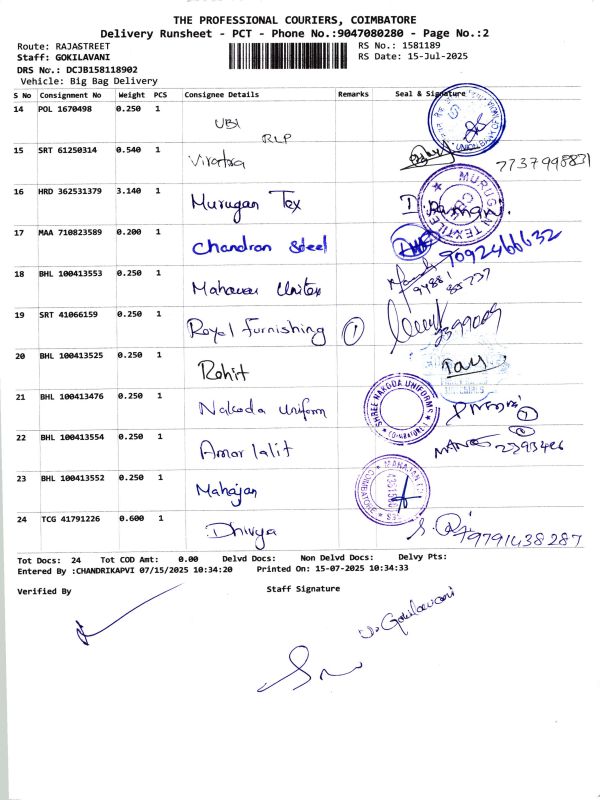 THE PROFESSIONAL COURIERS, COIMBATORE
Delivery Runsheet - PCT - Phone No.:9047080280 - Page No.:2
Route: RAJASTREET RS No.: 1581189
Staff: GOKILAVANI RS Date: 15-Jul-2025
DRS No.: DCJB158118902
Vehicle: Big Bag Delivery
S No Consignment No Weight PCS Consignee Details Remarks Seal & Signature
14 POL 1670498 0.250 1 UBI RLP
15 SRT 61250314 0.540 1 7737998831
16 HRD 362531379 3.140 1 Murugan Tex MURUGAN TEXTILE CBE
17 MAA 710823589 0.200 1 Chandran Steel 9092466632
18 BHL 100413553 0.250 1 Mahaveer Unitex
19 SRT 41066159 0.250 1 Royal furnishing 1
20 BHL 100413525 0.250 1 Rohit
21 BHL 100413476 0.250 1 Nakoda Uniform SHREE NAKODA UNIFORMS COIMBATORE-1
22 BHL 100413554 0.250 1 Amar lalit
23 BHL 100413552 0.250 1 Mahajan
24 TCG 41791226 0.600 1 Dhivya 9791438287
Tot Docs: 24 Tot COD Amt: 0.00 Delvd Docs: Non Delvd Docs: Delvy Pts:
Entered By :CHANDRIKAPVI 07/15/2025 10:34:20 Printed On: 15-07-2025 10:34:33
Verified By Staff Signature
Gokilavani